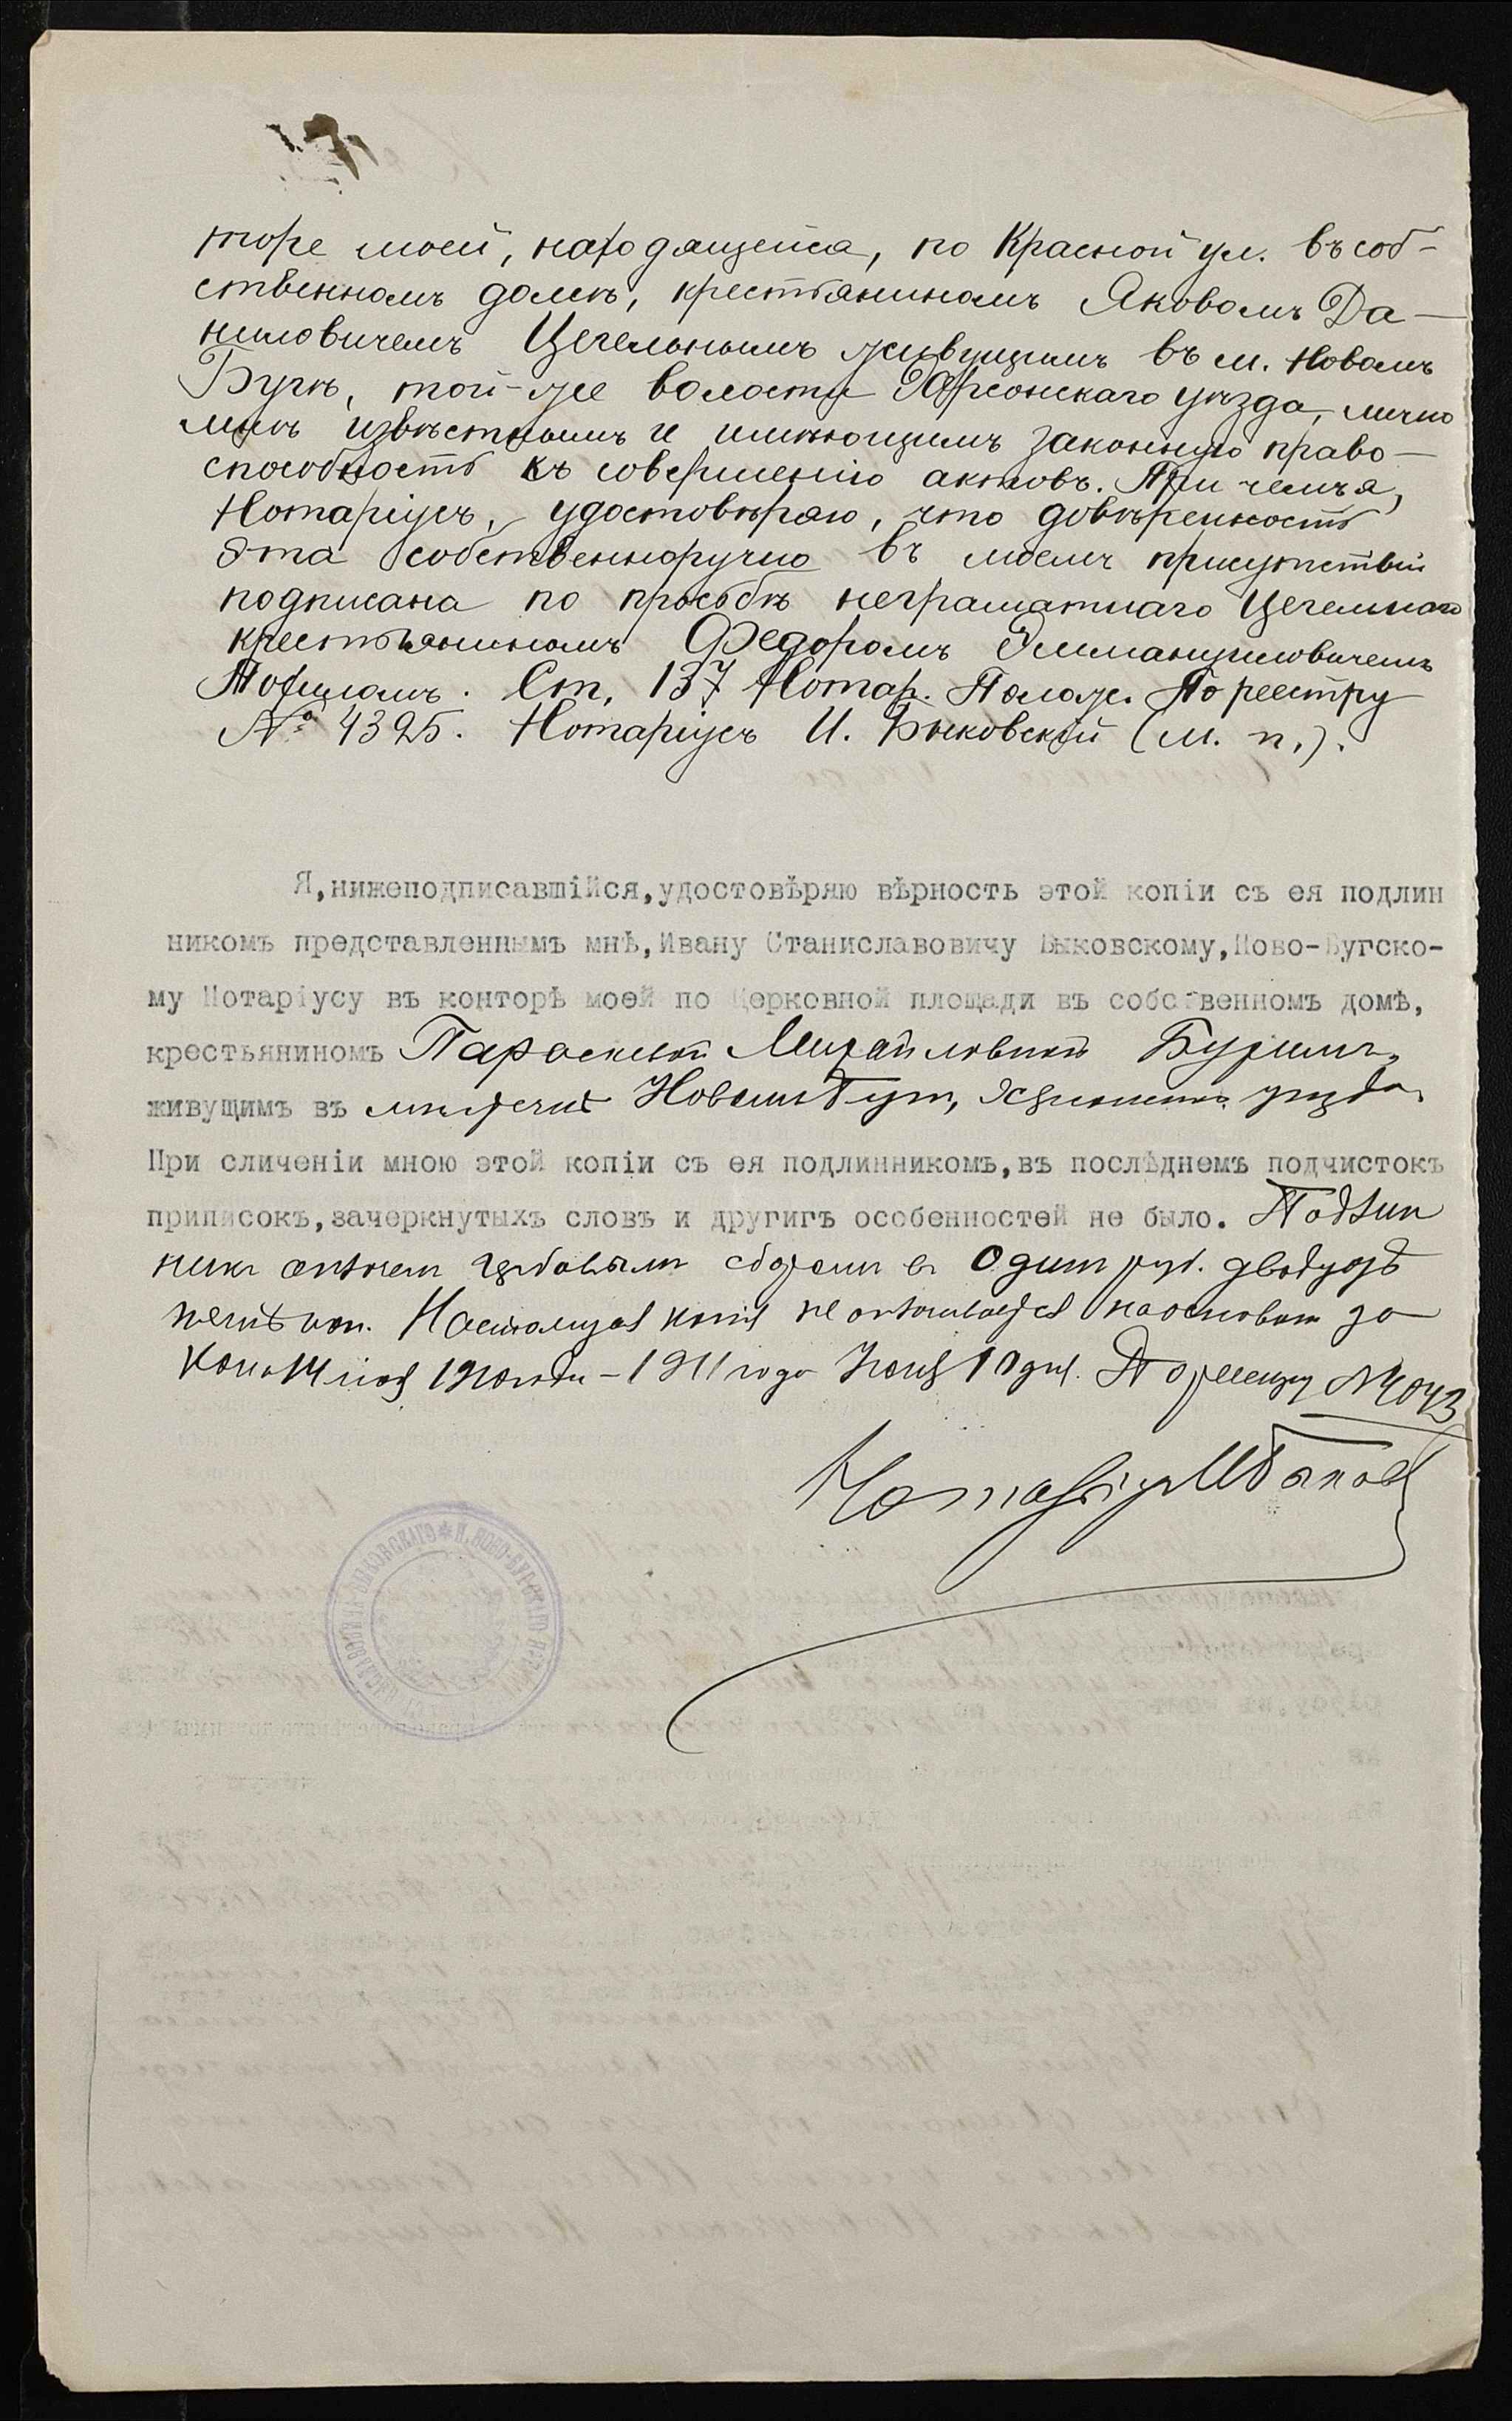 торе моей, находящейся, по Красной ул. въ соб-
ственномъ домѣ, крестьяниномъ Яковомъ Да-
ниловичемъ Цегельнымъ живущимъ въ м. Новомъ
Бугѣ, той-же волости Херсонскаго уѣзда, лично
мнѣ извѣстнымъ и имѣющимъ законную право-
способность къ совершенію актовъ. При чемъ я,
Нотаріусъ, удостовѣряю, что довѣренность
эта собственноручно въ моемъ присутствіи
подписана по просьбѣ неграмотнаго Цегельнаго
крестьяниномъ Федоромъ Эммануиловичемъ
Ст. 137 Нотар. Полож. По реестру
№ 4325. Нотаріусъ И. Быковскій (м. п.).
Я,нижеподписавшійся,удостовѣряю вѣрность этой копіи съ ея подлин
никомъ представленнымъ мнѣ,Ивану Станиславовичу Быковскому,Ново-Бугско-
му Нотаріусу въ конторѣ моей по Церковной площади въ собственномъ домѣ,
крестьяниномъ Параскевой Михайловной
живущимъ въ мѣстечкѣ Новомъ Бугѣ, уѣзда.
При сличеніи мною этой копіи съ ея подлинникомъ,въ послѣднемъ подчистокъ
приписокъ,зачеркнутыхъ словъ и другигъ особенностей не было. Подлин
никъ оплоченъ гербовымъ сборомъ въ Одинъ руб. двадцать
пять коп. Настоящая копія не оплачивается на основаніи за
кона 14 іюня 1910 года - 1911 года 10 дня. По реестру №
Нотаріусъ И Быков